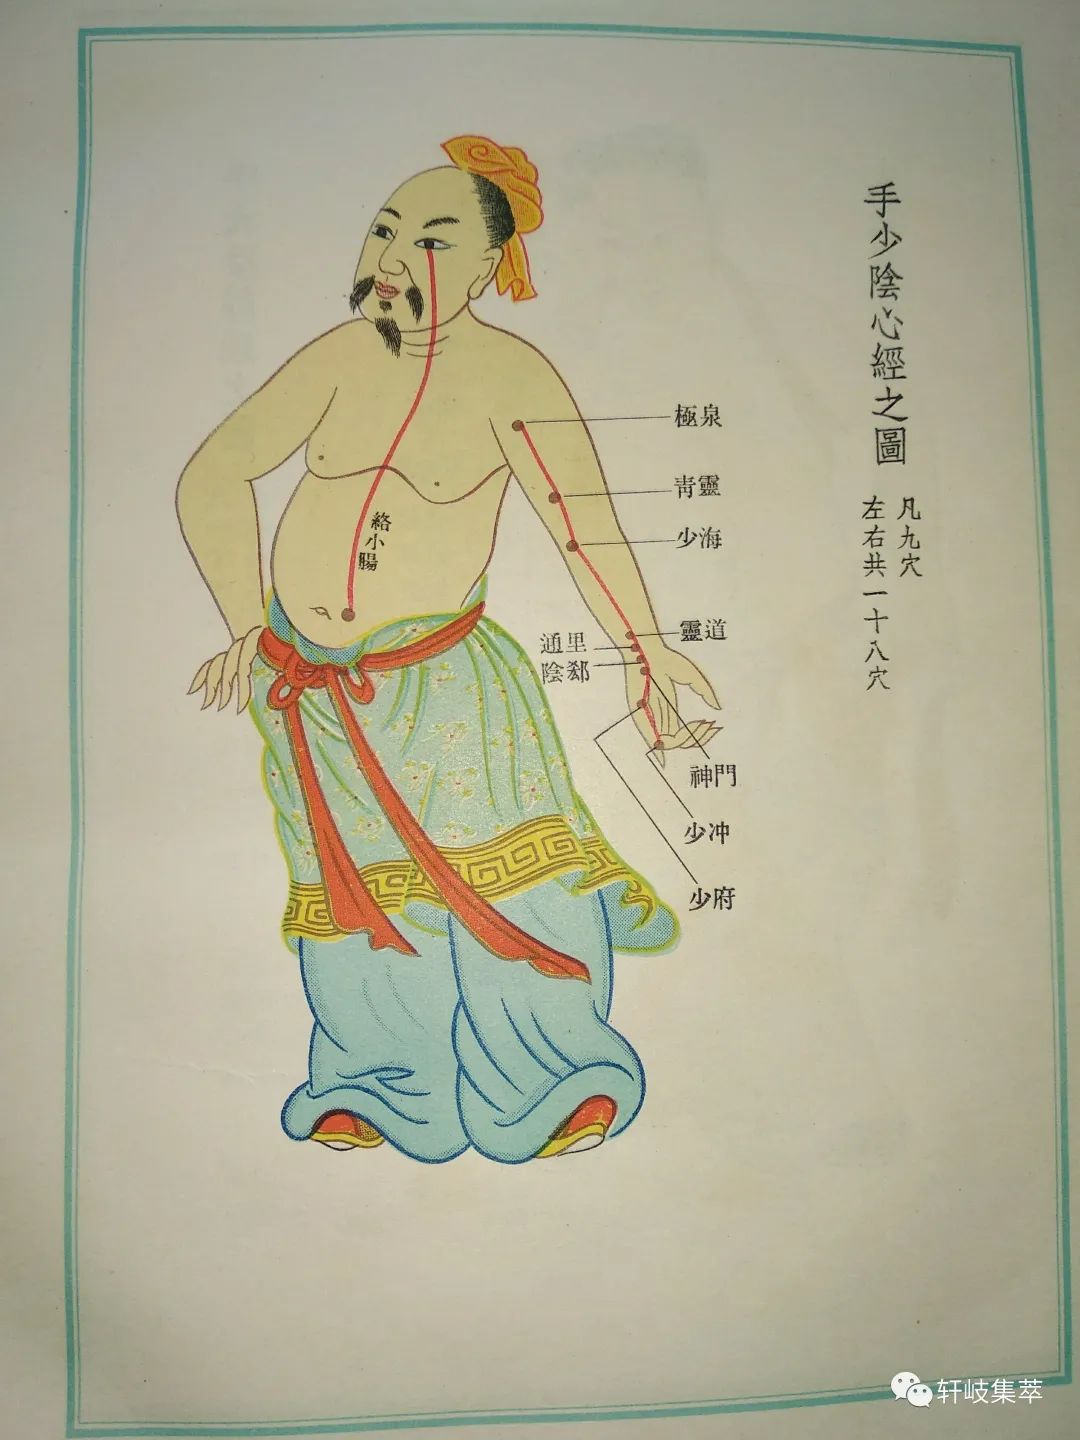 手少陰心經之圖
凡九穴
左右共一十八穴
極泉
青靈
少海
絡小腸
靈道
通里
陰郄
神門
少冲
少府
轩岐集萃